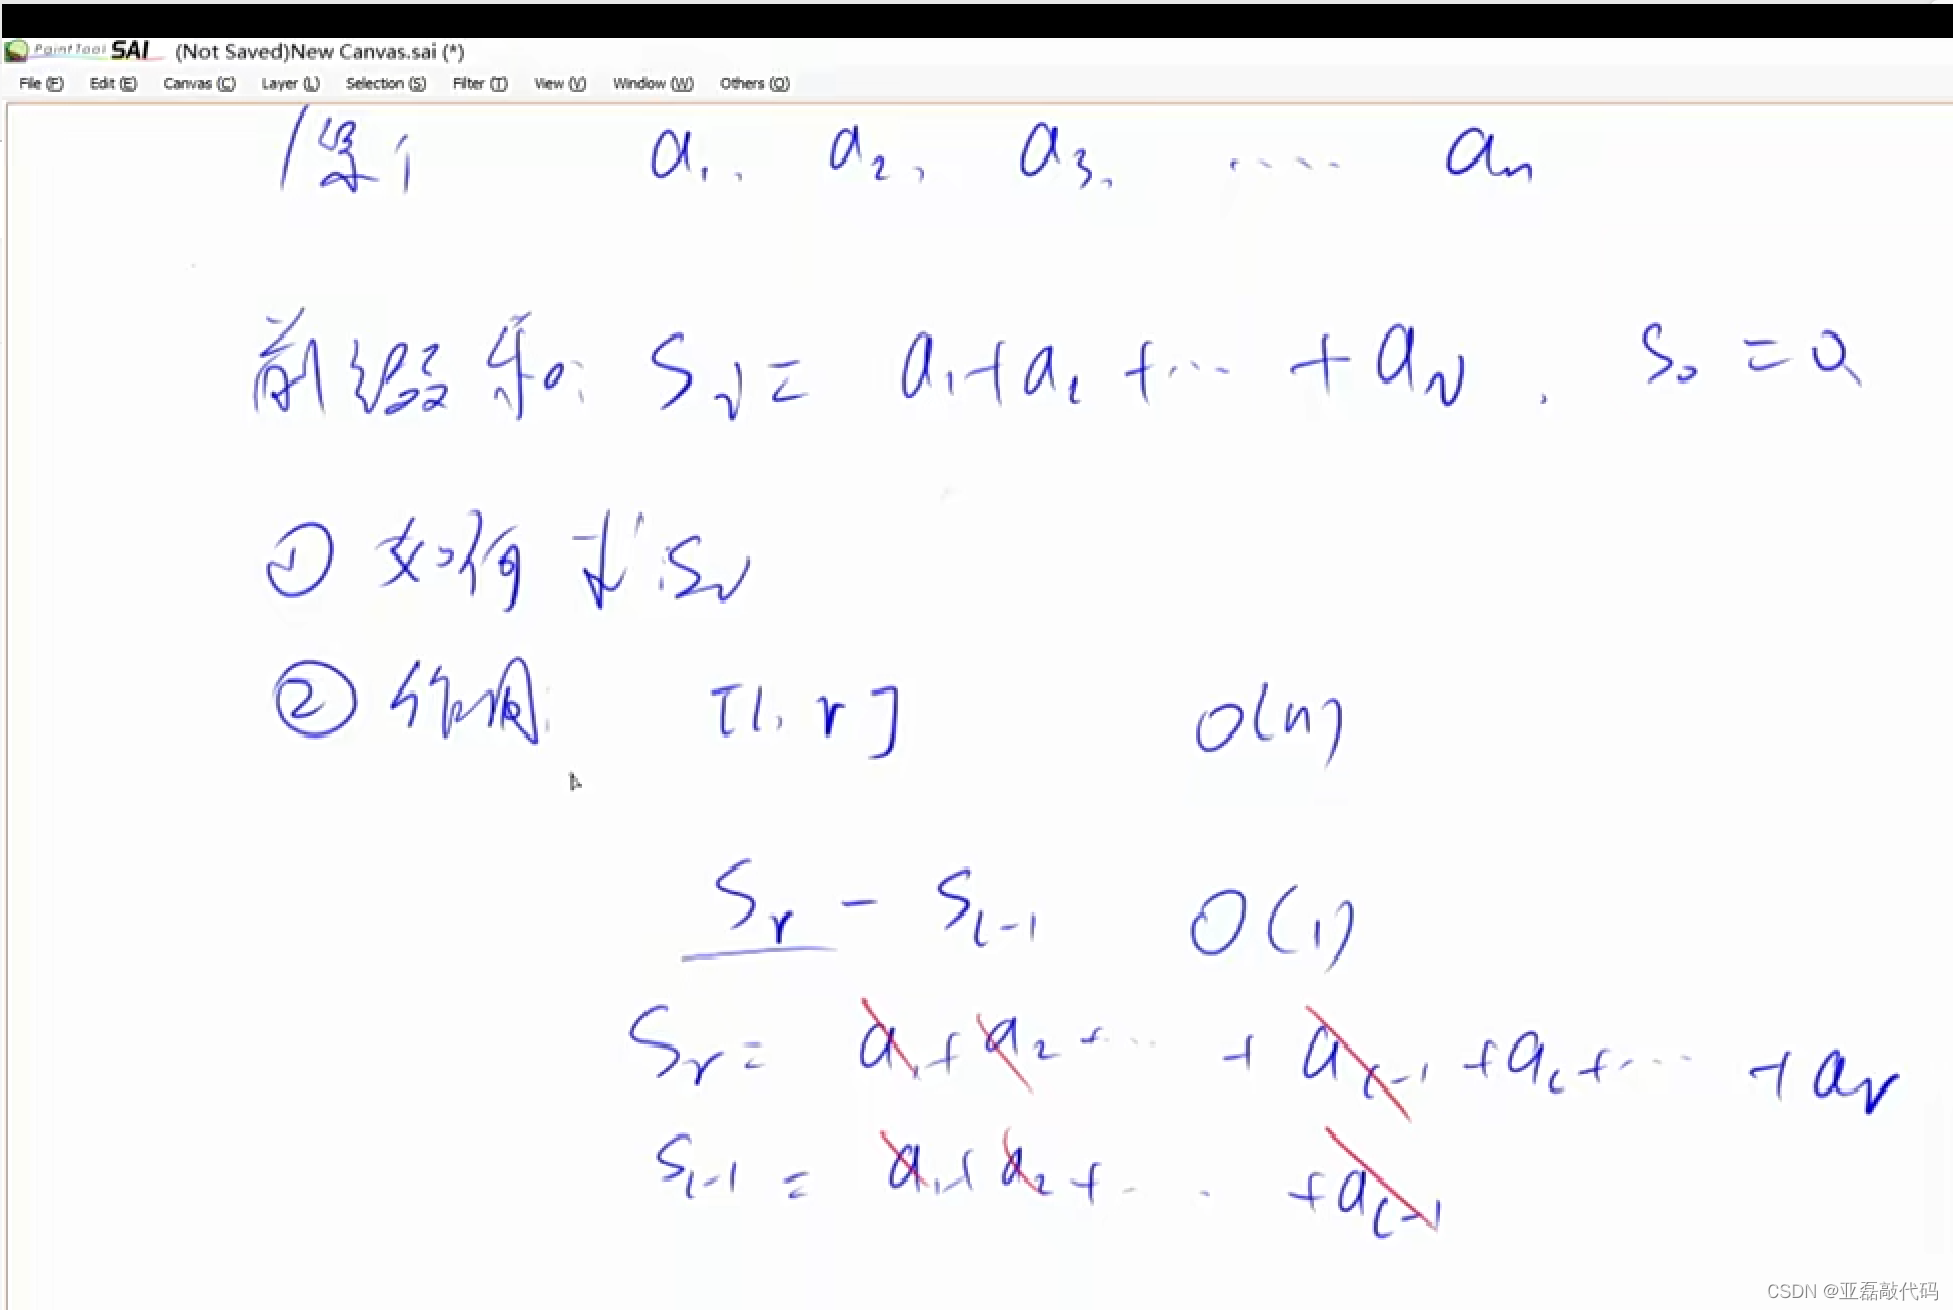 PaintTool SAI (Not Saved)New Canvas.sai (*)
File (F) Edit (E) Canvas (C) Layer (L) Selection (S) Filter (T) View (V) Window (W) Others (O)
a₁, a₂, a₃, .... aₙ
前缀和: Sᵢ = a₁+a₂+...+aᵢ. S₀ = 0
① 如何求Sᵢ
② 作用: [l, r] O(n)
Sᵣ - Sₗ₋₁ O(1)
Sᵣ = a₁+a₂+... + aₗ₋₁ +aₗ+... + aᵣ
Sₗ₋₁ = a₁+a₂+.. . +aₗ₋₁
CSDN @亚磊敲代码